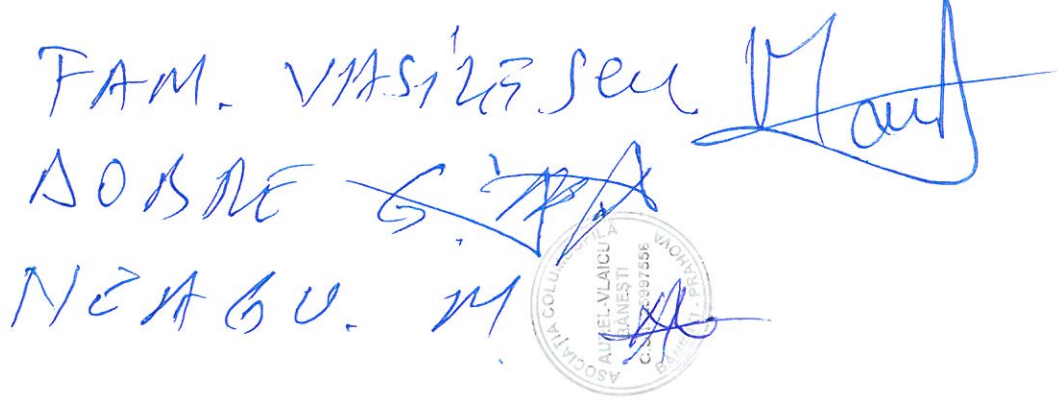 FAM. VASILESCU
DOBRE G.
NEAGU. M.
ASOCIAȚIA COLUMBOFILA
AUREL-VLAICU
BĂNEȘTI
BĂNEȘTI - PRAHOVA